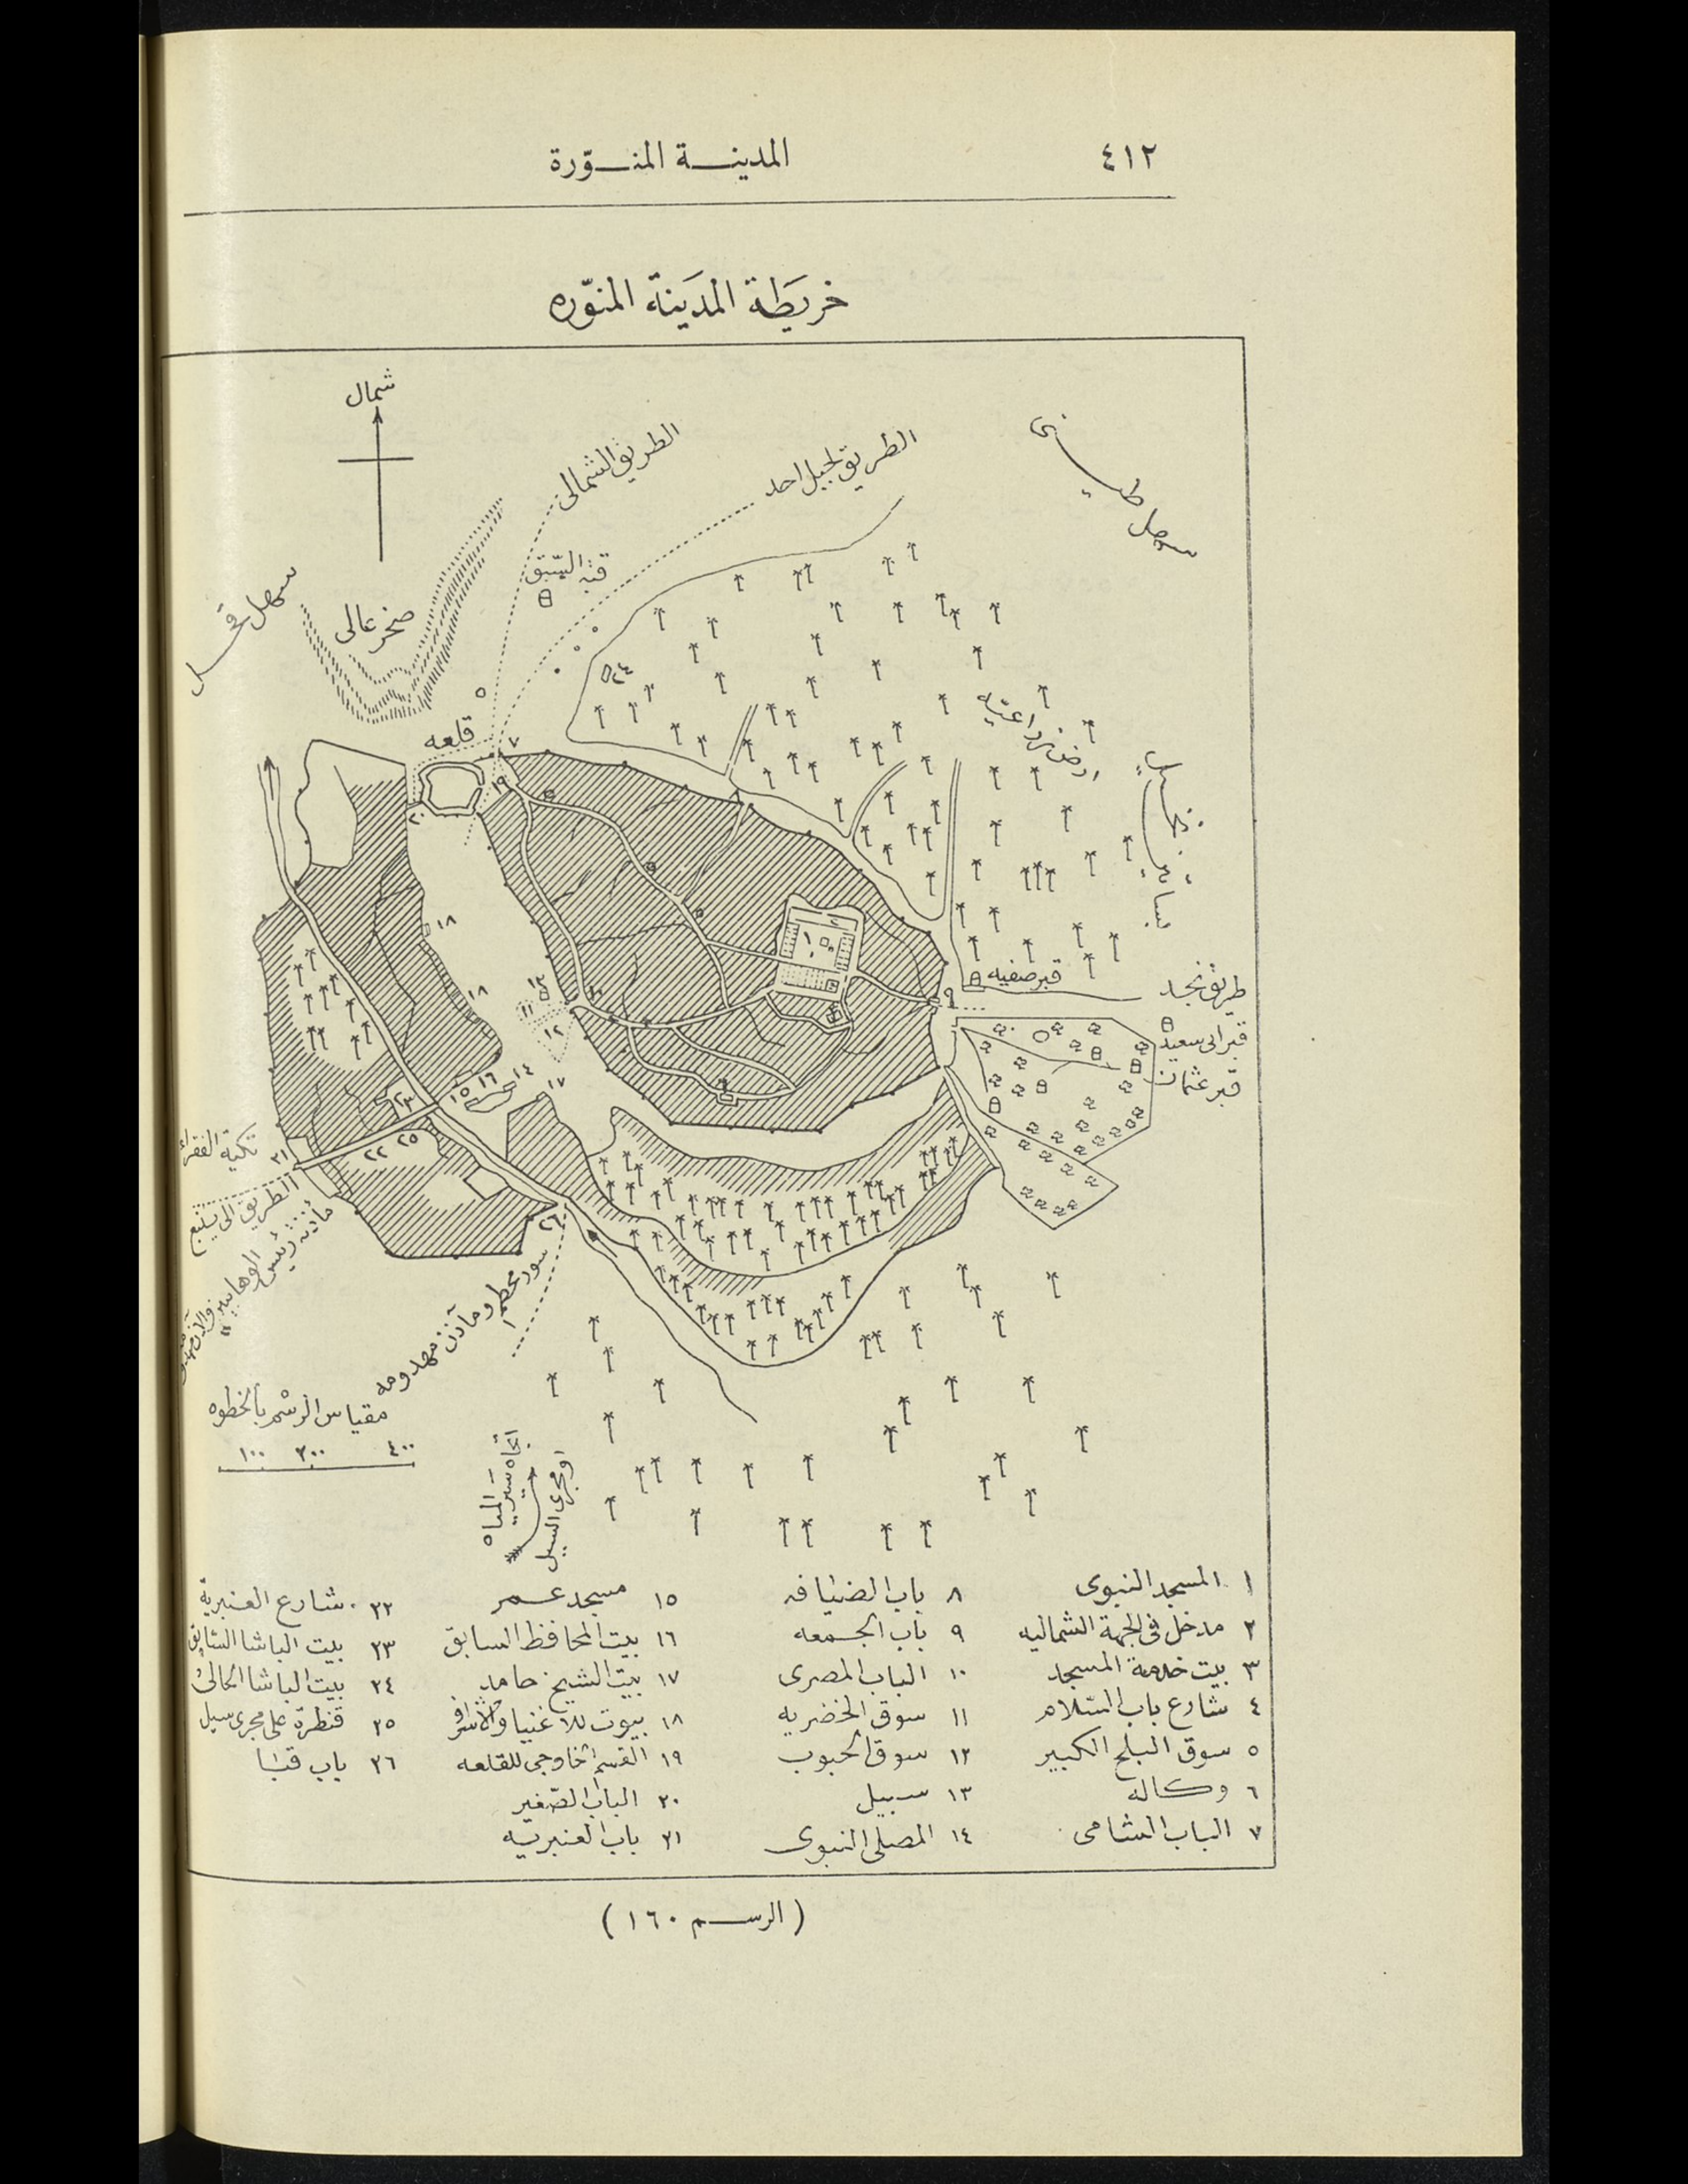 ٤١٢
المدينة المنوّرة
خريطة المدينة المنوّره
شمال
الطريق الشمالى
الطريق لجبل احد
سهل طينى
قبة السبق
سهل قحل
صخر عالى
قلعه
٧
١٩
٢٠
اراضى زراعيه
نخيل
بساتين
١٨
١٨
١
٢
قبر صفيه
طريق نجد
٩
١٣
١٠
١١
١٢
قبر ابى سعيد
قبر عثمان
١٤
١٦
١٥
١٧
٢٣
٢٥
٢٢
تكية الفقراء
٢١
الطريق الى ينبع
٢٦
سور محطم ومآذن مهدومه
مقياس الرسم بالخطوه
١٠٠ ٢٠٠ ٤٠٠
اتجاه سير المياه
او مجرى السيل
١ المسجد النبوى
٢ مدخل فى الجهة الشماليه
٣ بيت خدمة المسجد
٤ شارع باب السّلام
٥ سوق البلح الكبير
٦ وكالة
٧ الباب الشامى
٨ باب الضيافه
٩ باب الجمعه
١٠ الباب المصرى
١١ سوق الخضريه
١٢ سوق الحبوب
١٣ سبيل
١٤ المصلى النبوى
١٥ مسجد عمر
١٦ بيت المحافظ السابق
١٧ بيت الشيخ حامد
١٨ بيوت للاغنيا والاشراف
١٩ القسم الخارجى للقلعه
٢٠ الباب الصّغير
٢١ باب العنبريّه
٢٢ شارع العنبرية
٢٣ بيت الباشا السابق
٢٤ بيت الباشا الحالى
٢٥ قنطرة على مجرى سيل
٢٦ باب قبا
(الرسم ١٦٠)